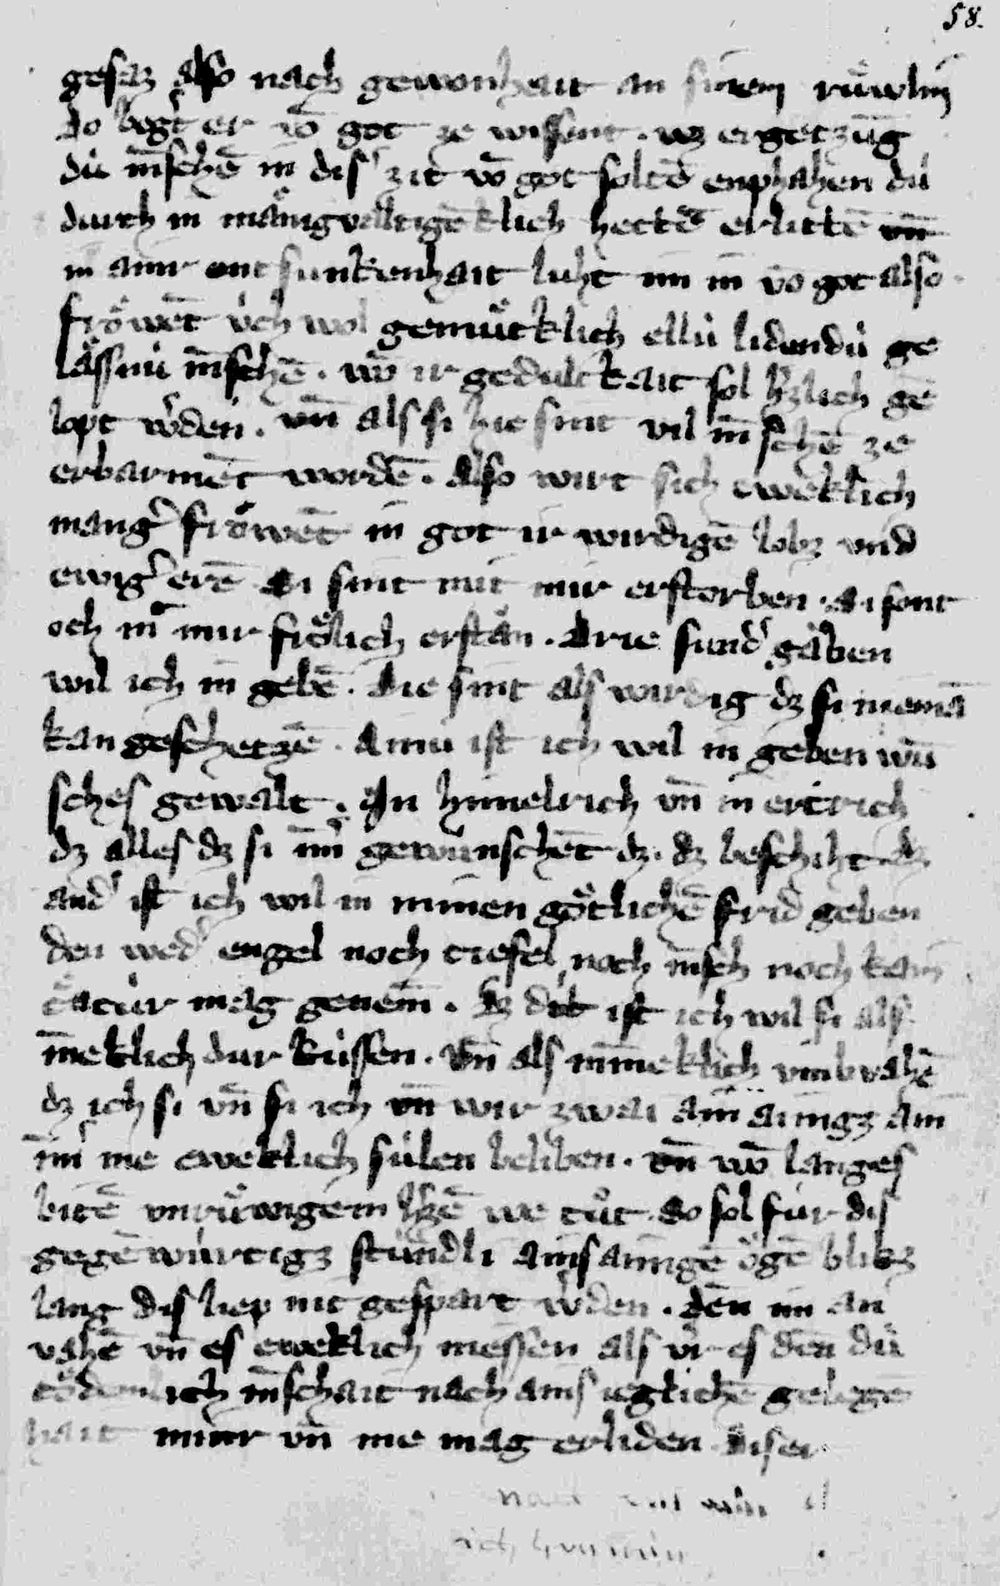 58.
gesaz also nach gewonhait an sinem rüwlin
do begt er vō got ze wissent. wz ergetzūg
dú mēschē in diſ zit vō got soltē enphahen dú
durch in mänigvaltigeklich hettē erlittē vn̄
in ainr entsunkenhait luht im in vō got also
fröwēt úch wol gemütklich ellú lidendú ge
lässnú mēschē. wō ir gedultkait sol hzlich ge
lopt wͬden. vn̄ als si hie sint vil mēschē ze
erbarmēt wordē. Also wirt sich eweklich
mangͬ fröwēt in got ir wirdigē lobz vnd
ewigͬ erē di sint mit mir erstorben. di sont
och mͭ mir frölich erstān. Drie sundͬ gäben
wil ich in gebē. Die sint als wirdig dz si niemā
kan geschetzē. Ainú ist ich wil in geben wū
sches gewalt. In himelrich vn̄ in ertrich
dz alles dz si im̄ gewúnschēt dz. dz beschiht dz
andͬ ist ich wil in minen götlichē frid geben
den wedͬ engel noch tiefel noch mēsch noch kain
c͛atúr mag genem̄. Dz drit ist ich wil si als
in̄eklich dur kússen. vn̄ als min̄eklich vmbvahē
dz ich si vn̄ si ich vn̄ wir zwai ain ainigz ain
im̄ me eweklich súlen beliben. vn̄ wō langes
bitē vnrüwigem hzē we tůt. do sol fúr dis
gegēwúrtigz stündli ains ainigē ögē blikz
lang dis liep nit gespart wͬden. dēn im an
vahē vn̄ es eweklich niessen als vir es dēn dú
tödemlich mēschait nach ains ieglichē gelegē
hait minr vn̄ me mag erliden diser